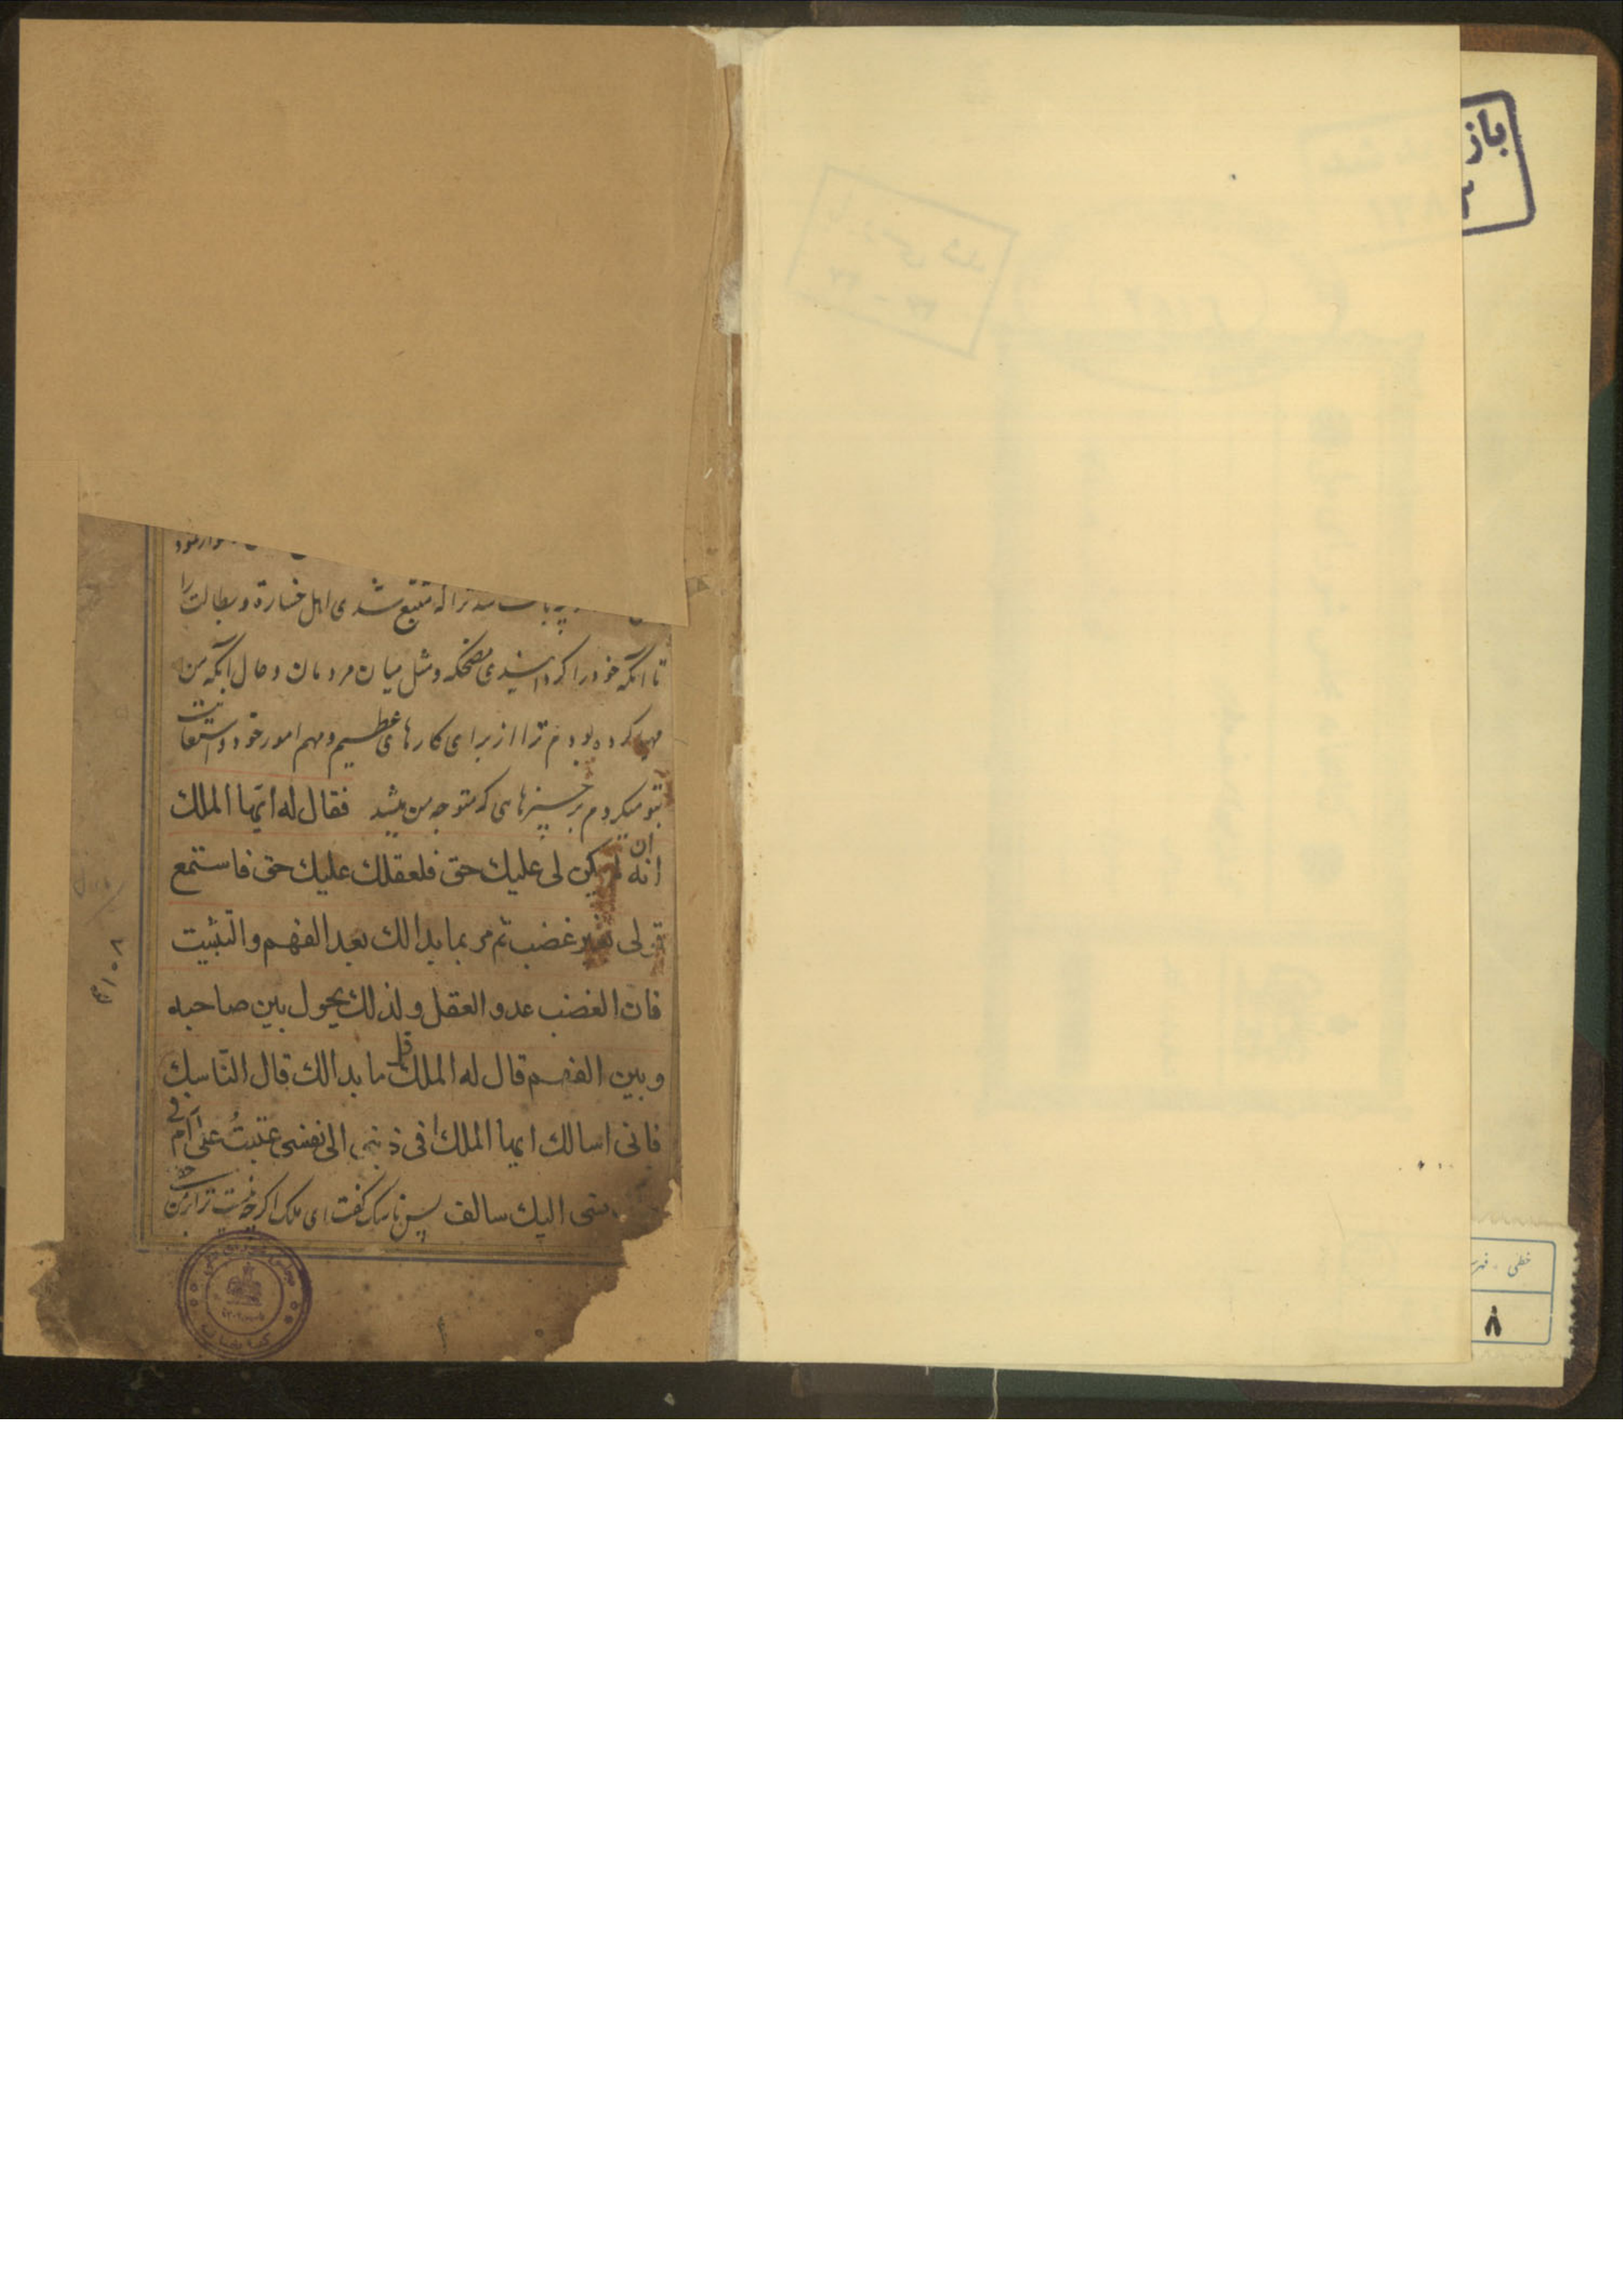 تتبع شدی اهل خسارة و بطالت را
تا آنکه خود را کردانیدی مضحکه و مثل میان مردمان و حال آنکه من
مهیا کرده بودم ترا از برای کارهای عظیم و مهم امور خود و استعانت
بتو میکردم بر چیزهای که متوجه من میشد فقال له ایّها الملك
انه ان لم یکن لی علیك حق فلعقلك علیك حق فاستمع
قولی بغیر غضب ثم مر بما بدا لك بعد الفهم و التثبیت
فان الغضب عدو العقل و لذلك یحول بین صاحبه
و بین الفهم قال له الملك قل ما بدا لك قال الناسك
فانی اسالك ایها الملك افی ذنبی الی نفسی عتبت علیّ ام فی
منی الیك سالف پس ناسک کفت ای ملک اکرچه نیست ترا بر من حق
باز
خطی - فهر
۸